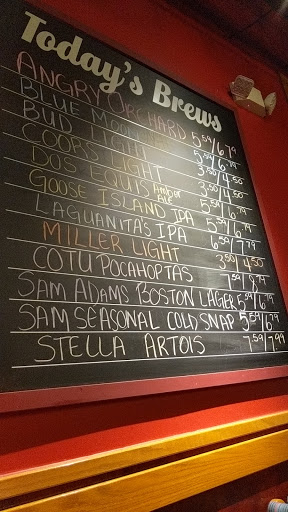 Today's Brews
ANGRY ORCHARD 5.59/6.79
BLUE MOON 5.59/6.79
BUD LIGHT 3.50/4.50
COORS LIGHT 3.50/4.50
DOS EQUIS Amber Ale 5.59/6.79
GOOSE ISLAND IPA 5.59/6.79
LAGUANITA'S IPA 6.59/7.79
MILLER LIGHT 3.50/4.50
COTU POCAHOPTAS 7.59/8.79
SAM ADAMS BOSTON LAGER 5.59/6.79
SAM SEASONAL COLD SNAP 5.59/6.79
STELLA ARTOIS 7.59/7.99